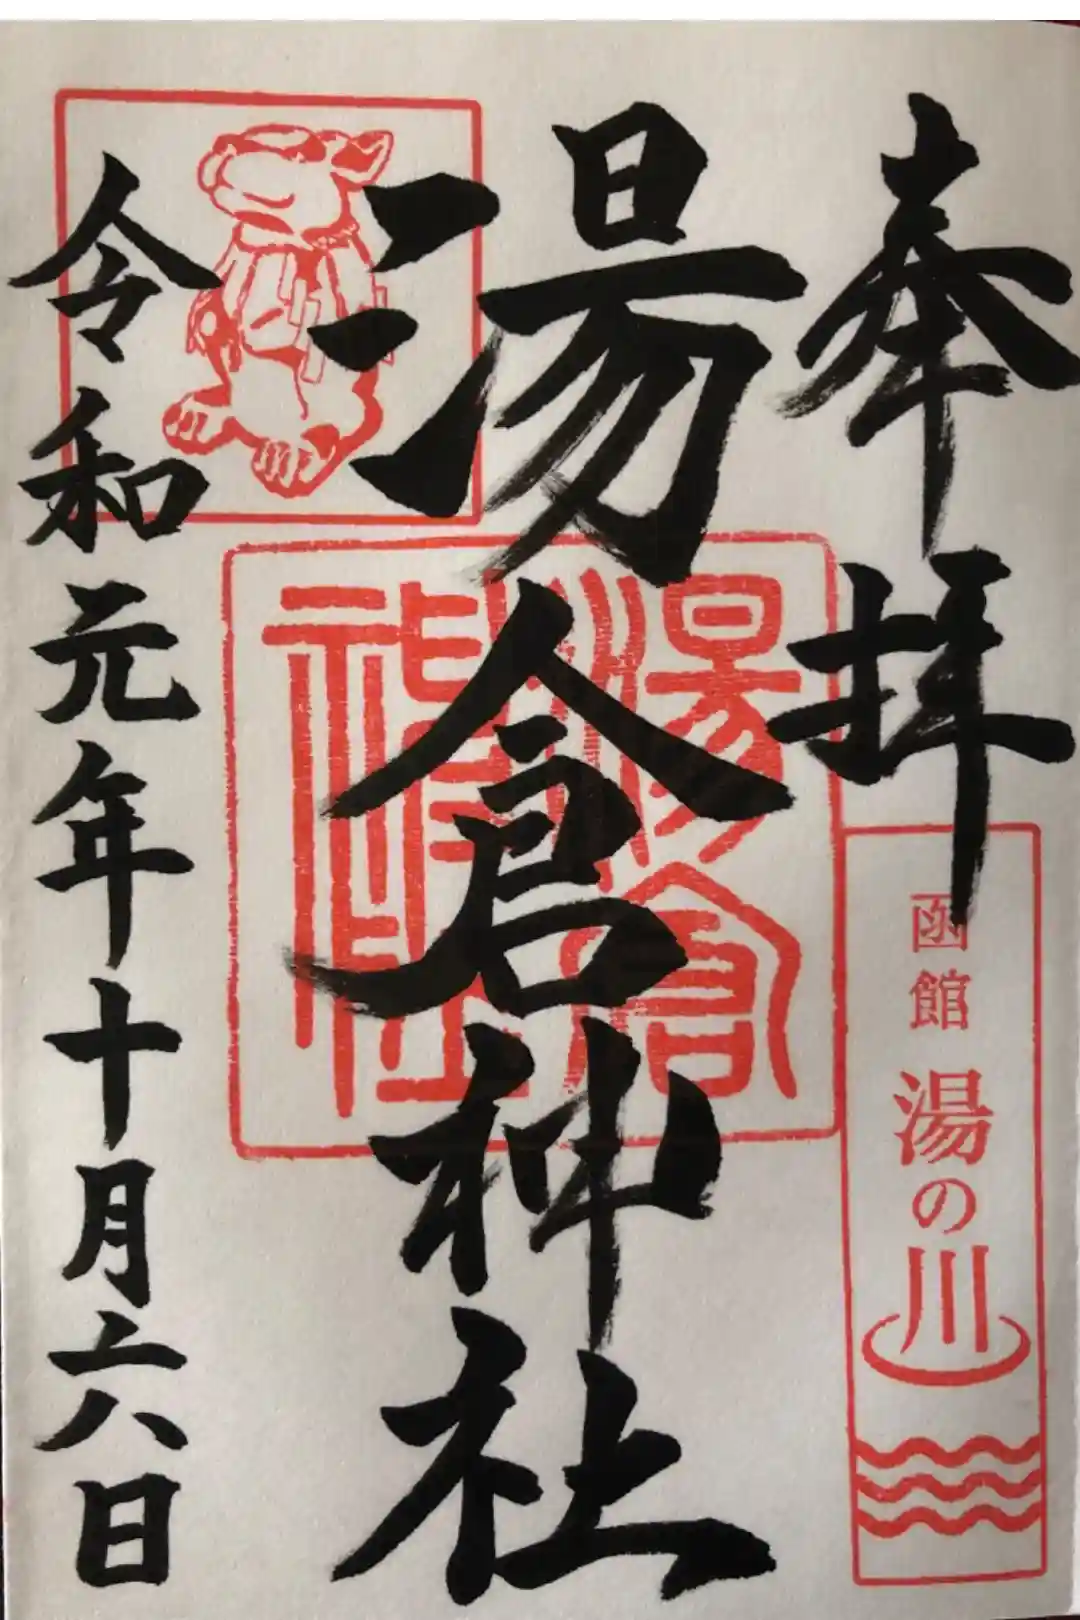 奉拝
函館 湯の川
湯倉神社
湯倉神社
令和元年十月二八日